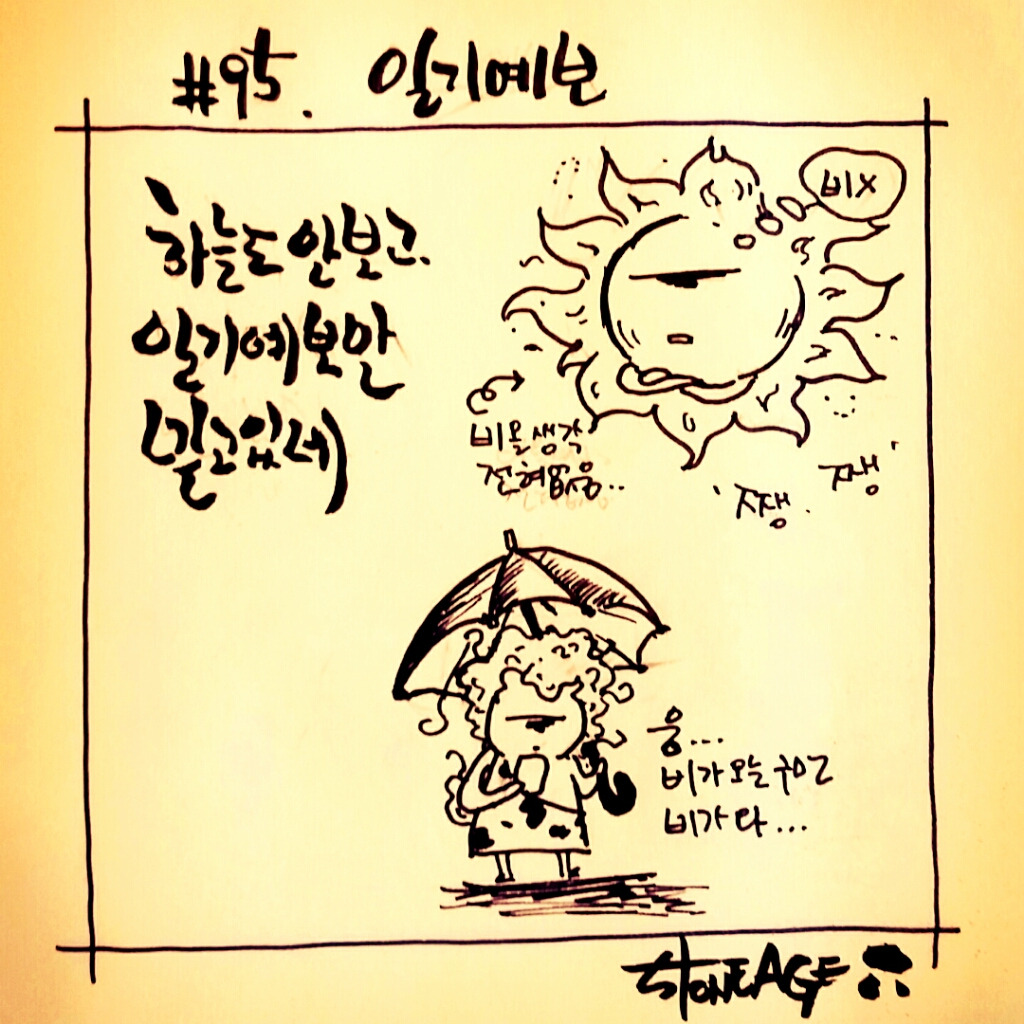 #95. 일기예보
하늘도 안보고.
일기예보만
믿고있네
비X
비올생각
전혀없음..
'쨍.
쨍'
웅...
비가오는구먼
비가와...
STONEAGE